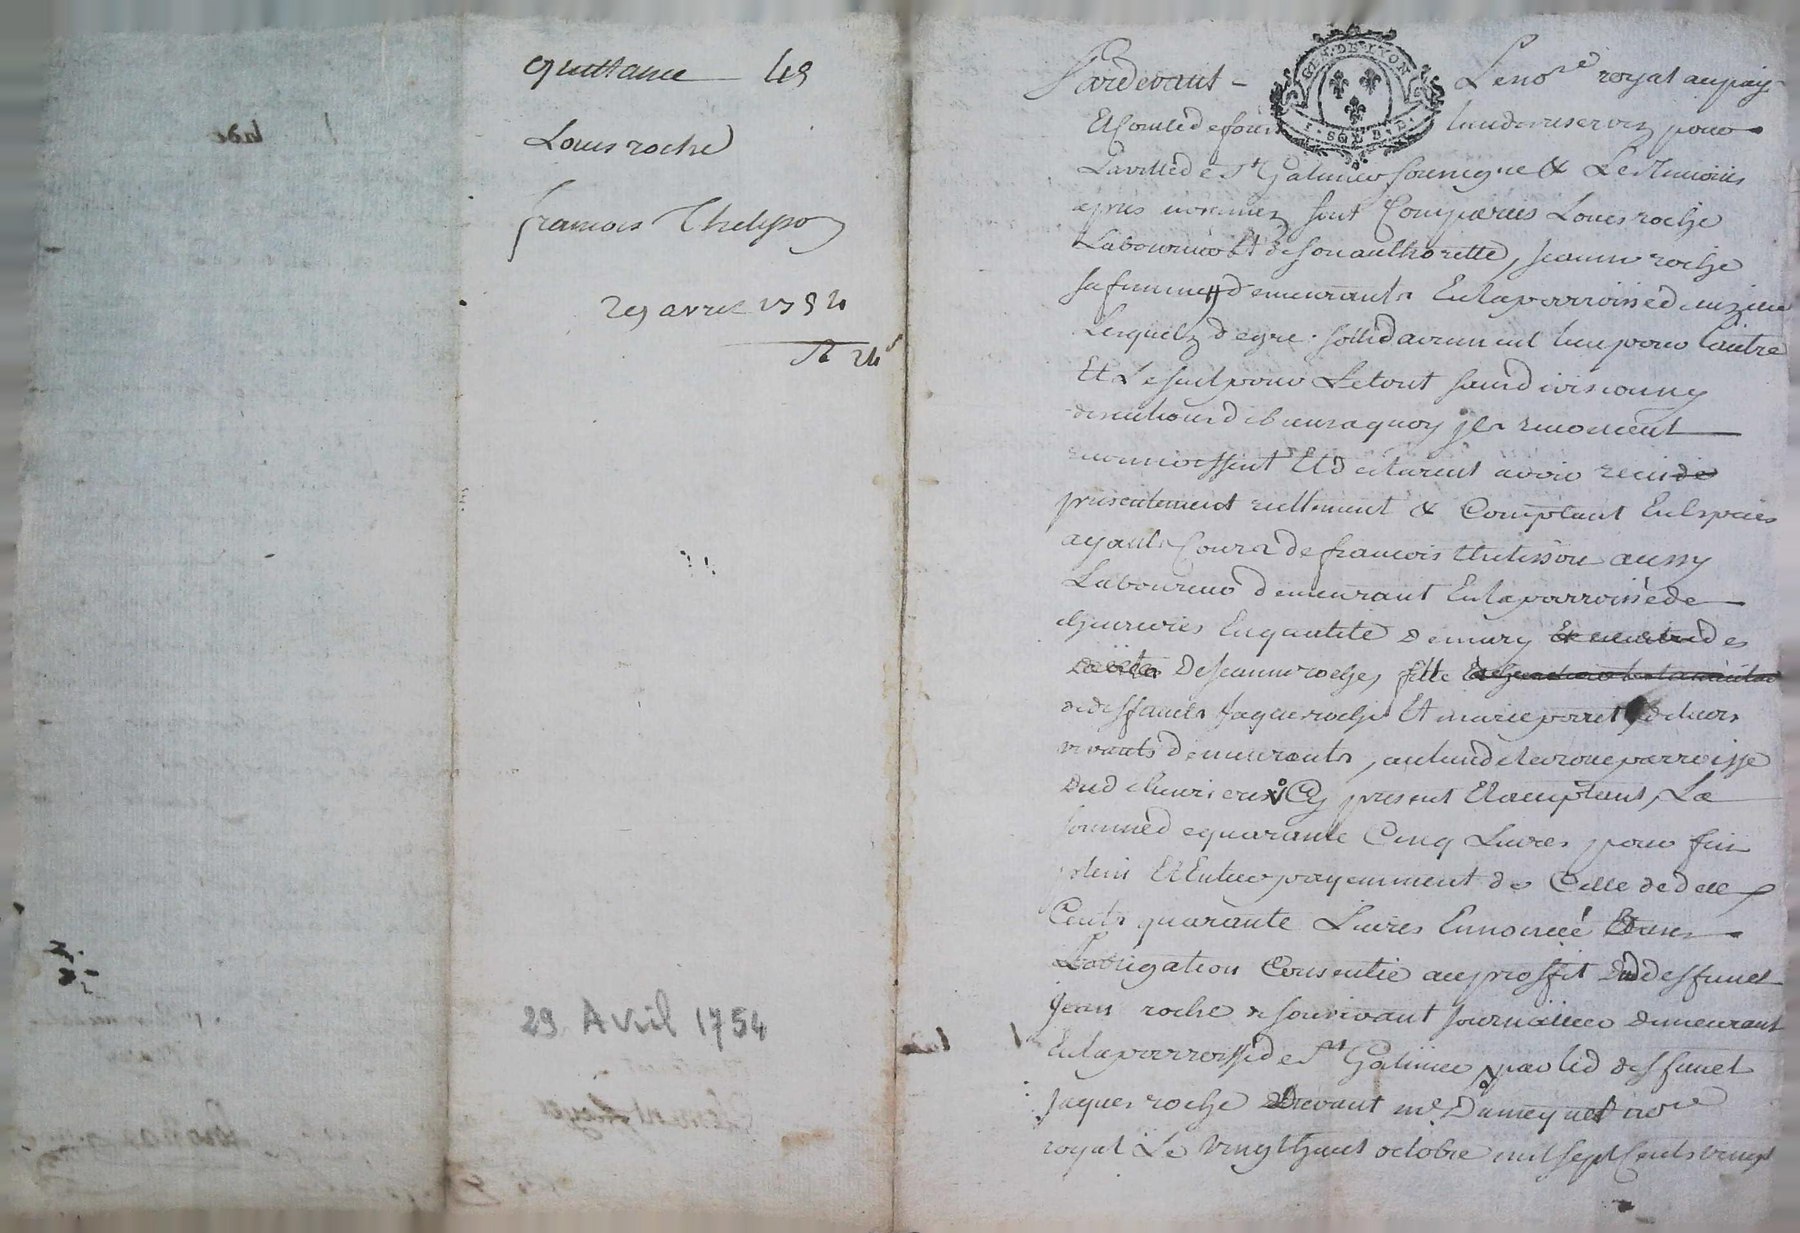 quittance 45
Louis roche
francois Thelisson
29 avril 1754
R 24s
29 Avril 1754
GEN. DE LYON
Pardevant Le nore royal au pays
Et Comté de forest soussigné reservez pour
La ville de St Galmier soussigné & Les Temoins
aprés nommez sont Comparus Louis roche
Laboureur Et de son authoritté, Jeanne roche
sa femme demeurants En la parroisse de
Lesquels de gré sollidairement lun pour l'autre
Et Le seul pour Le tout sans division ny
discution de biens a quoy jls renoncent
reconnoissent Et déclarent avoir receu de
presentement réellement & Comptant En Especes
ayants Cours de francois thelisson aussy
Laboureur demeurant En la parroisse de
chevrieres En qualité de mary
de Jeanne roche, fille
de deffunts Jaque roche Et marie porret de leurs
vivants demeurants, au lieu de parroisse
dud chevrieres Cy present Et acceptant, La
somme de quarante Cinq Livres pour fin
plein Et Entier payemment de Celle de deux
Cents quarante Livres Ennoncéé
Lobligation Consentie au proffit dud deffunct
Jean roche de son vivant Journallier demeurant
En la parroisse de St Galmier par led deffunct
Jaques roche Devant me Dameyuet nore
royal Le vingt huit octobre mil sept Cents vingt